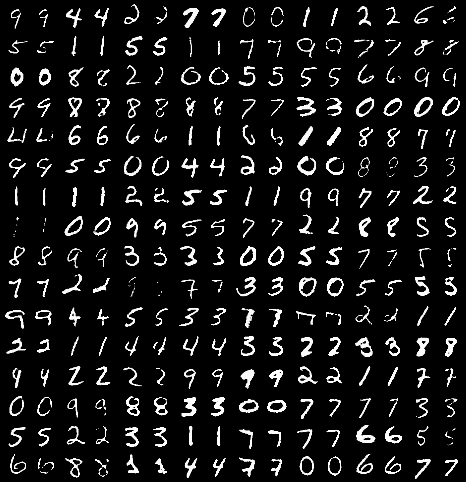 9 9 4 4 2 2 7 7 0 0 1 1 2 2 6 6
5 5 1 1 5 5 1 1 7 7 9 9 7 7 8 8
0 0 8 8 2 2 0 0 5 5 5 5 6 6 9 9
9 9 8 8 8 8 8 8 7 7 3 3 0 0 0 0
4 4 6 6 6 6 1 1 6 6 1 1 8 8 7 7
9 9 5 5 0 0 4 4 2 2 0 0 8 8 3 3
1 1 1 1 2 2 5 5 1 1 9 9 7 7 2 2
1 1 0 0 9 9 5 5 7 7 2 2 8 8 5 5
8 8 9 9 3 3 3 3 0 0 5 5 7 7 5 5
7 7 2 2 9 9 7 7 3 3 0 0 5 5 5 5
9 9 4 4 5 5 3 3 7 7 7 7 2 2 1 1
2 2 1 1 4 4 4 4 3 3 2 2 3 3 8 8
4 4 2 2 2 2 9 9 9 9 2 2 1 1 7 7
0 0 9 9 8 8 3 3 0 0 7 7 7 7 3 3
5 5 2 2 3 3 1 1 7 7 7 7 6 6 5 5
6 6 8 8 1 1 4 4 7 7 0 0 6 6 7 7